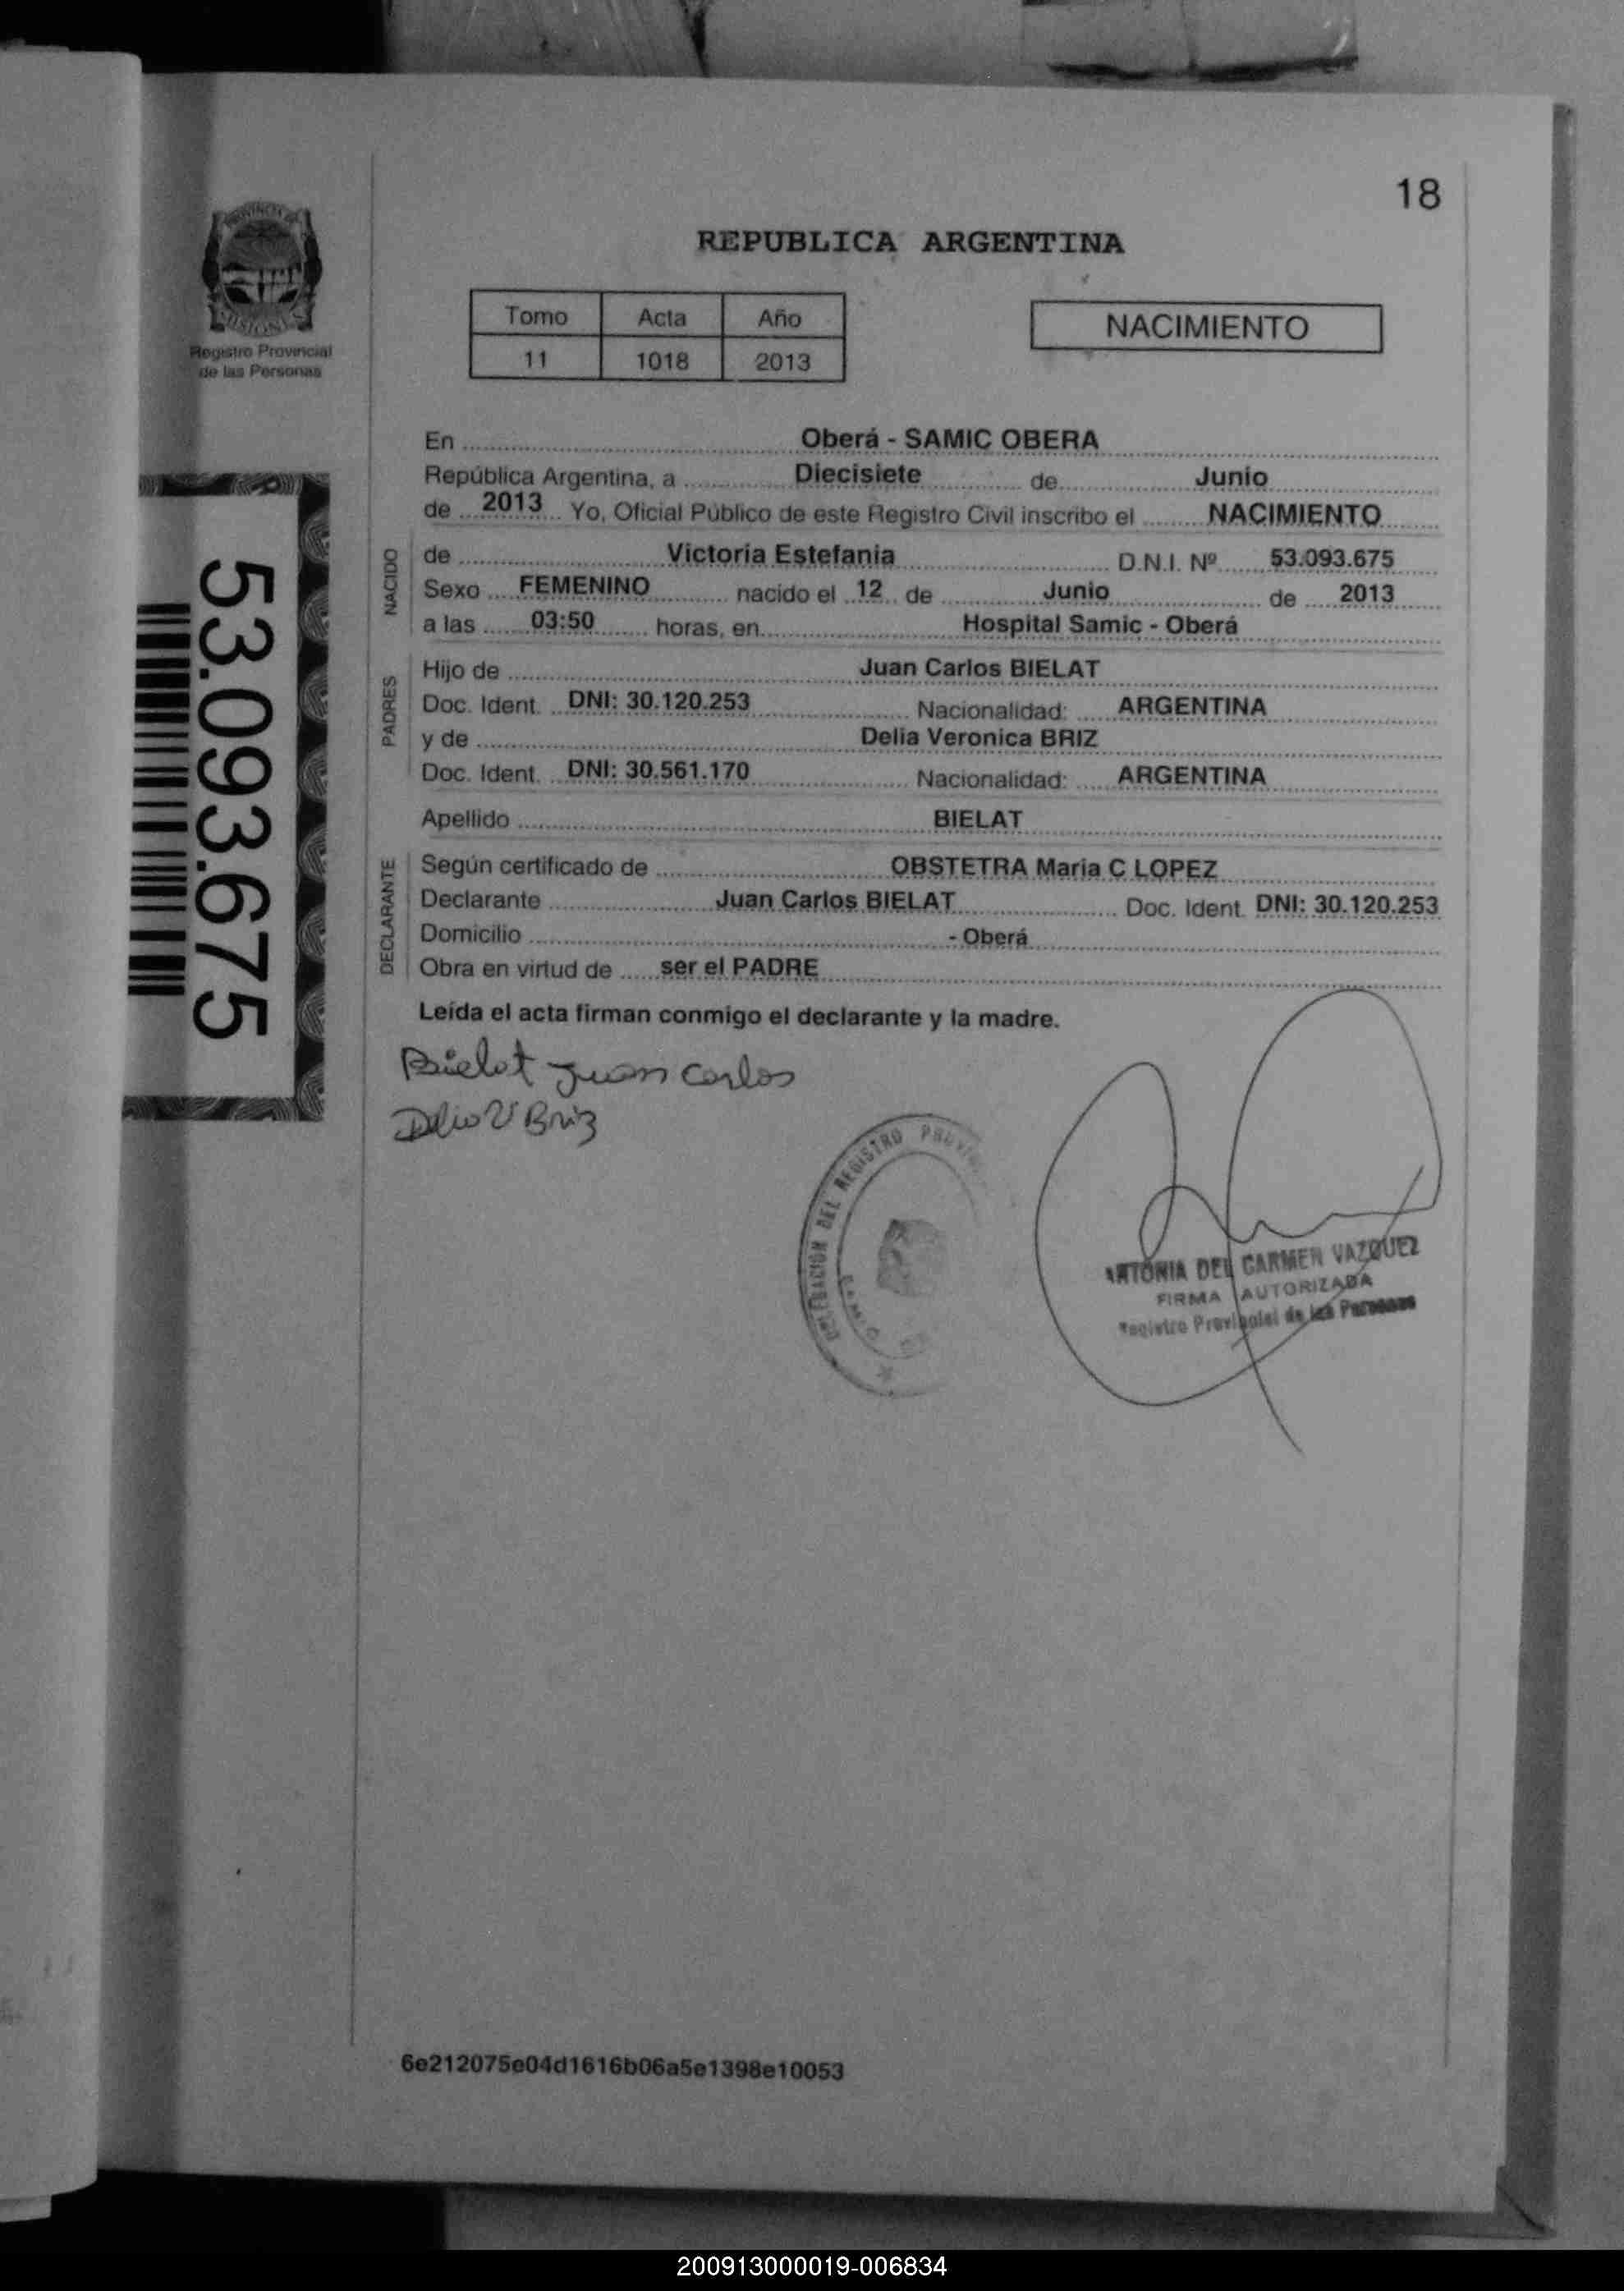 18
PROVINCIA DE
MISIONES
Registro Provincial
de las Personas
REPUBLICA ARGENTINA
Tomo Acta Año
11 1018 2013
NACIMIENTO
En Oberá - SAMIC OBERA
República Argentina, a Diecisiete de Junio
de 2013 Yo, Oficial Público de este Registro Civil inscribo el NACIMIENTO
NACIDO
de Victoria Estefania D.N.I. Nº 53.093.675
Sexo FEMENINO nacido el 12 de Junio de 2013
a las 03:50 horas, en Hospital Samic - Oberá
PADRES
Hijo de Juan Carlos BIELAT
Doc. Ident. DNI: 30.120.253 Nacionalidad: ARGENTINA
y de Delia Veronica BRIZ
Doc. Ident. DNI: 30.561.170 Nacionalidad: ARGENTINA
Apellido BIELAT
DECLARANTE
Según certificado de OBSTETRA Maria C LOPEZ
Declarante Juan Carlos BIELAT Doc. Ident. DNI: 30.120.253
Domicilio - Oberá
Obra en virtud de ser el PADRE
Leída el acta firman conmigo el declarante y la madre.
53.093.675
Bielat Juan Carlos
Delia V Briz
DELEGACIÓN DEL REGISTRO
ANTONIA DEL CARMEN VAZQUEZ
FIRMA AUTORIZADA
Registro Provincial de las Personas
6e212075e04d1616b06a5e1398e10053
200913000019-006834